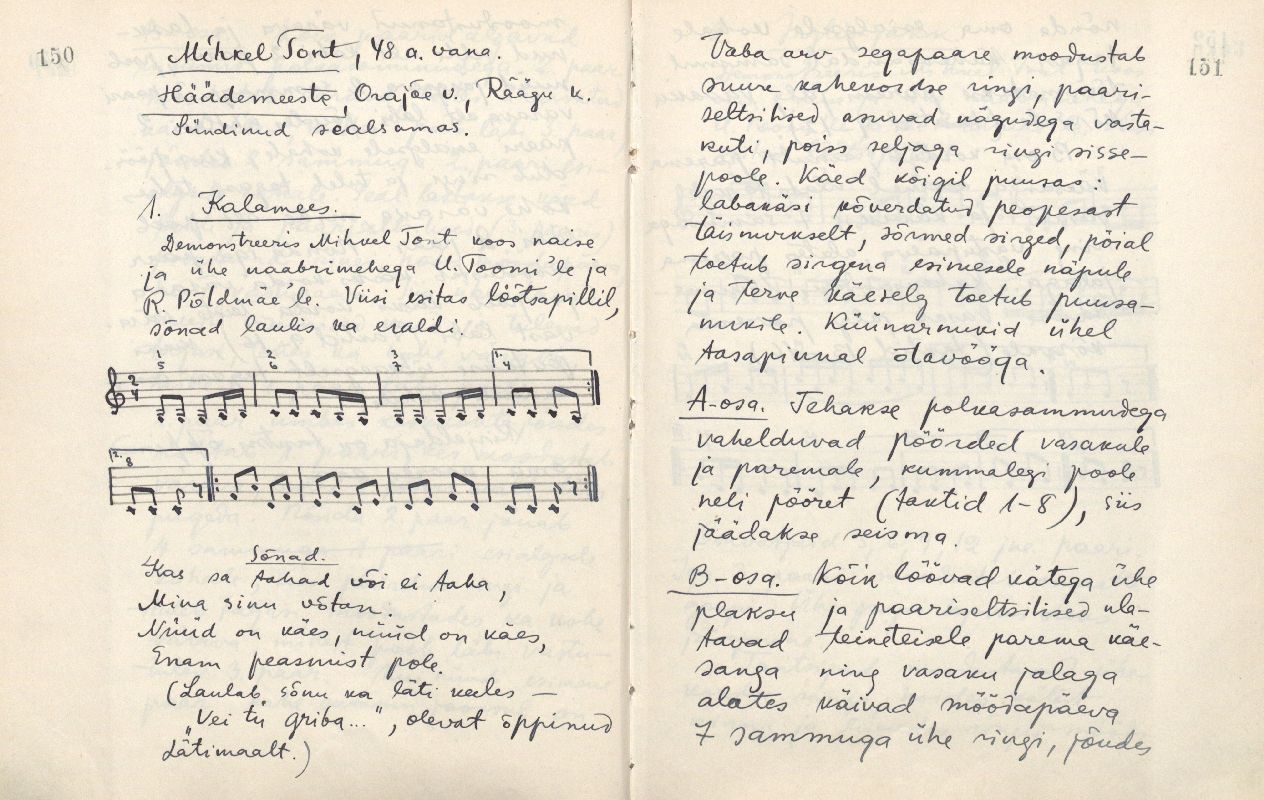 150
Mihkel Tont, 48 a. vana.
Häädemeeste, Orajõe v., Räägu k.
Sündinud sealsamas.
1. Kalamees.
Demonstreeris Mihkel Tont koos naise
ja ühe naabrimehega U. Toomi'le ja
R. Põldmäe'le. Viisi esitas lõõtsapillil,
sõnad laulis ka eraldi.
1 2 3 1.
5 6 7 4
2
4
2. 8
Sõnad.
Kas sa tahad või ei taha,
Mina sinu võtan.
Nüüd on käes, nüüd on käes,
Enam peasmist pole.
(Laulab sõnu ka läti keeles —
„Vei tu griba...", olevat õppinud
Lätimaalt.)
151
Vaba arv segapaare moodustab
suure kahekordse ringi, paari-
seltsilised asuvad nägudega vasta-
kuti, poiss seljaga ringi sisse-
poole. Käed kõigil puusas:
labakäsi kõverdatud peopesast
täisnurkselt, sõrmed sirged, pöial
toetub sirgena esimesele näpule
ja terve käeselg toetub puusa-
nukile. Küünarnukid ühel
tasapinnal õlavööga.
A-osa. Tehakse polkasammudega
vahelduvad pöörded vasakule
ja paremale, kummalegi poole
neli pööret (taktid 1-8), siis
jäädakse seisma.
B-osa. Kõik löövad kätega ühe
plaksu ja paariseltsilised ula-
tavad teineteisele parema käe-
sanga ning vasaku jalaga
alates käivad möödapäeva
7 sammuga ühe ringi, jõudes